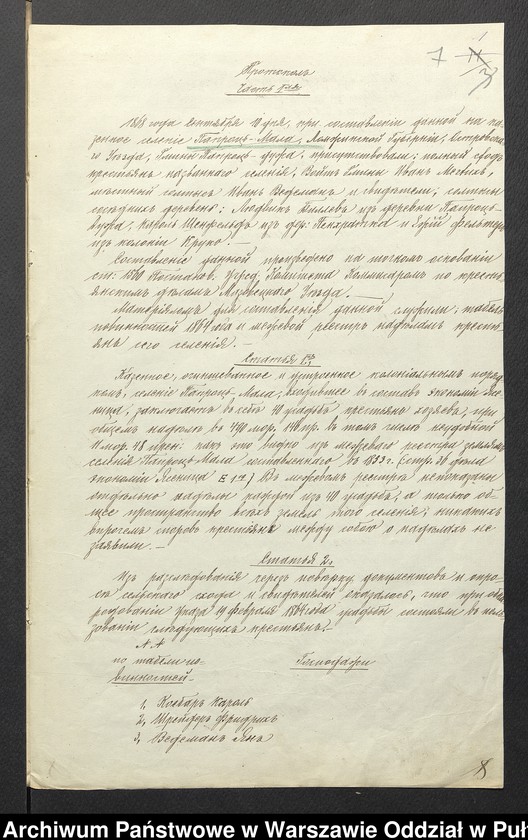 7 11
Протоколъ
Часть Iая
1868 года Сентября 10 дня, при составленіи данной на ка-
зенное селеніе Папроць-Мала, Ломжинской Губерніи, Островска-
го Уѣзда, Гмины Папроць-Дужа, присутствовали: полный сходъ
крестьянъ названнаго селенія, Войтъ Гмины Иванъ
мѣстный солтысъ Иванъ Ведеманъ и свидѣтели, солтысы
сосѣднихъ деревень: Людвикъ изъ деревни Папроць-
Дужа, Кароль Шенфельдъ изъ дер. и
изъ колоніи Круно. —
Составленіе данной произведено на точномъ основаніи
ст: 1860 Постанов. Учред. Комитета Коммисаромъ по кресть-
янскимъ дѣламъ Мазовецкаго Уѣзда. —
Матеріяломъ для составленія данной служили: табель
повинностей 1864 года и межевой реестръ надѣламъ кресть-
янъ сего селенія. —
Статья 1ая
Казенное, очиншеванное и устроенное колоніальнымъ поряд-
комъ, селеніе Папроць-Мала, входившее въ составъ экономіи Яс-
ница, заключаетъ въ себѣ 40 усадьбъ крестьянъ хозяевъ, при
общемъ надѣлѣ въ мор. пр. въ томъ числѣ неудобной
11 мор. 48 прен: какъ это видно изъ межеваго реестра землямъ
селенія Папроць-Мала составленнаго въ 1833 г. (стр. 38 дѣла
экономіи Ясница Е 12) Въ межевомъ реестрѣ непоказаны
отдѣльно надѣлы каждой изъ 40 усадьбъ, а только об-
щее пространство всѣхъ земель этого селенія; никакихъ
впрочемъ споровъ крестьяне между собою о надѣлахъ не
заявили. —
Статья 2.
Изъ разслѣдованія черезъ повѣрку документовъ и опро-
съ сельскаго схода и свидѣтелей оказалось, что при обна-
родованіи Указа 19 Февраля 1864 года усадьбы состояли въ поль-
зованіи слѣдующихъ крестьянъ: —
№ №
по табели по-
винностей
1, Колбаръ Кароль
2, Шрейферъ Фридрихъ
3, Ведеманъ Янъ
Archiwum Państwowe w Warszawie Oddział w Puł